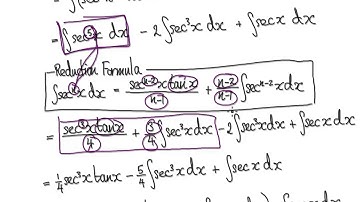 = ∫sec⁵x dx − 2∫sec³x dx + ∫secx dx
Reduction Formula
∫secⁿx dx = secⁿ⁻²x tanx / n-1 + n-2 / n-1 ∫secⁿ⁻²x dx
= sec³x tanx / 4 + 3 / 4 ∫sec³x dx − 2∫sec³x dx + ∫secx dx
= 1/4 sec³x tanx − 5/4 ∫sec³x dx + ∫secx dx